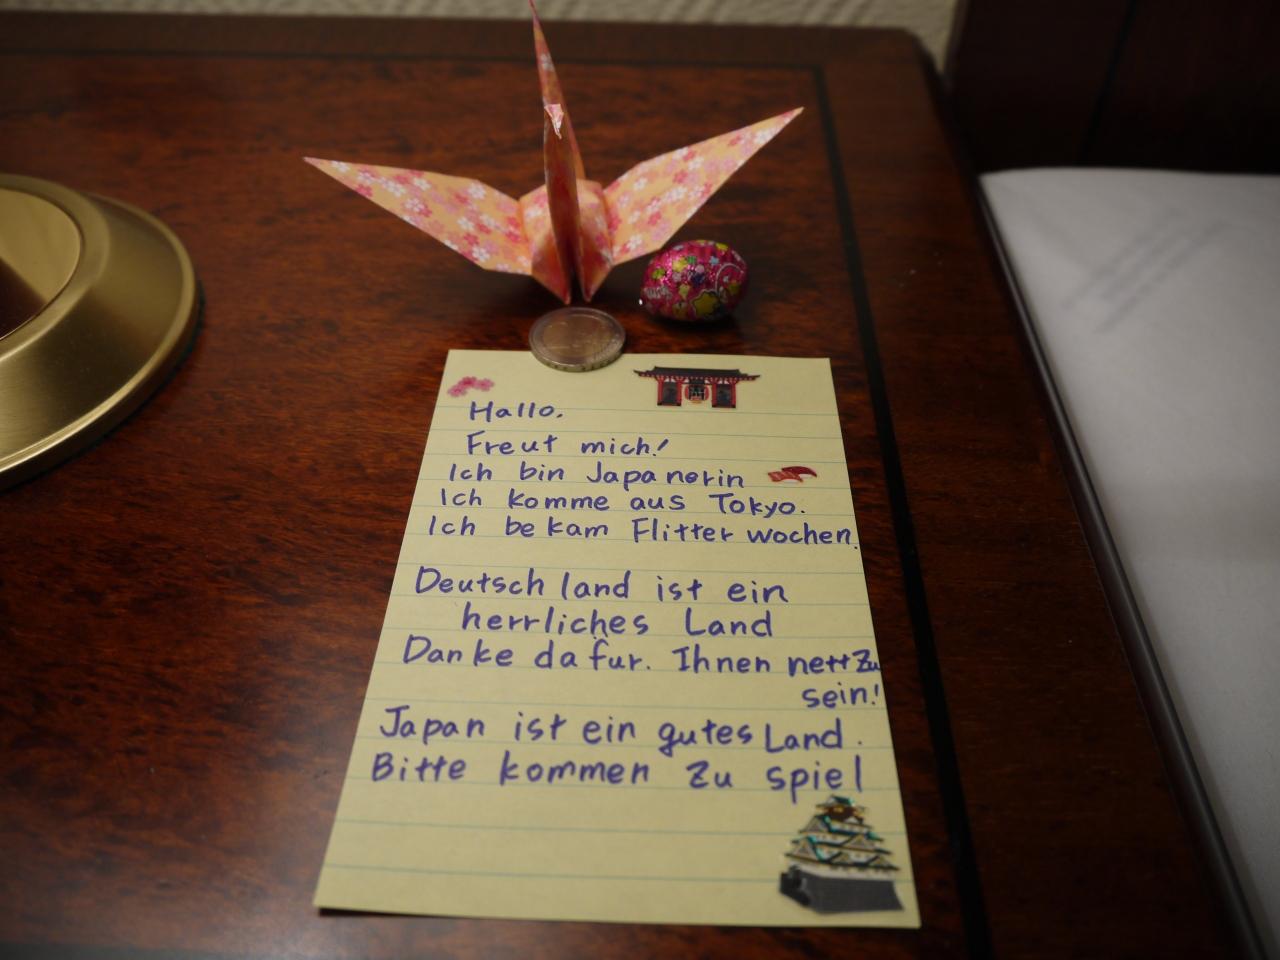 Hallo.
Freut mich!
Ich bin Japanerin
Ich komme aus Tokyo.
Ich bekam Flitterwochen.
Deutschland ist ein
herrliches Land
Danke dafur. Ihnen nett zu
sein!
Japan ist ein gutes Land.
Bitte kommen zu spiel